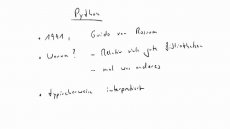 Python
• 1991, Guido van Rossum
• Warum? - Relativ viele gute Bibliotheken
- mal was anderes
• typischerweise interpretiert